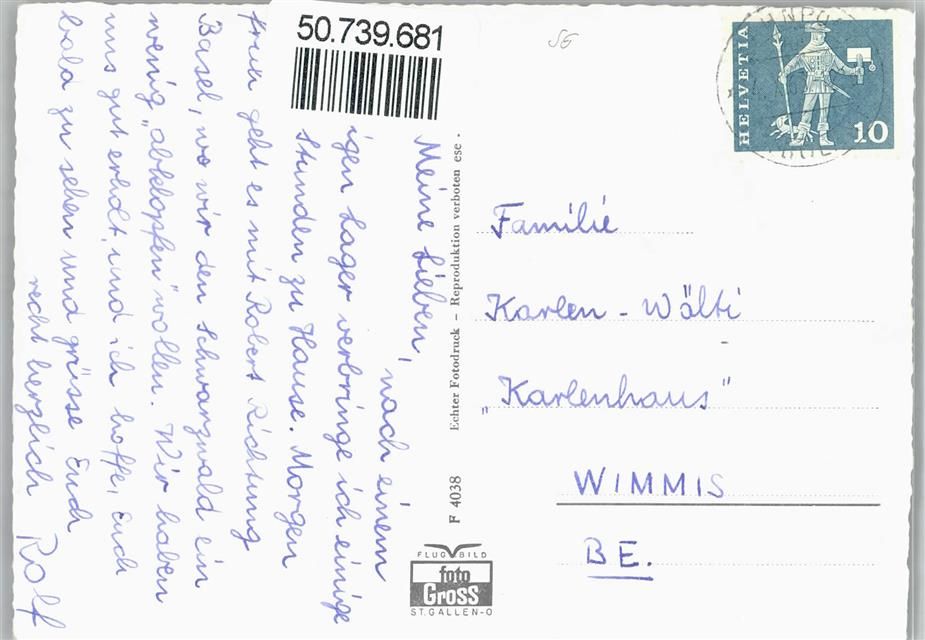 50.739.681
SG
HELVETIA
10
Meine Lieben, nach einem
igen Lager verbringe ich einige
Stunden zu Hause. Morgen
geht es mit Robert Richtung
Basel, wo wir den Schwarzwald ein
wenig „abklopfen" wollen. Wir haben
uns gut erholt, und ich hoffe, Euch
bald zu sehen und grüsse Euch
recht herzlich Rolf
F 4038 Echter Fotodruck – Reproduktion verboten ese.
FLUGBILD
foto
Gross
ST. GALLEN-O
Familie
Karlen - Wälti
„Karlenhaus"
WIMMIS
BE.